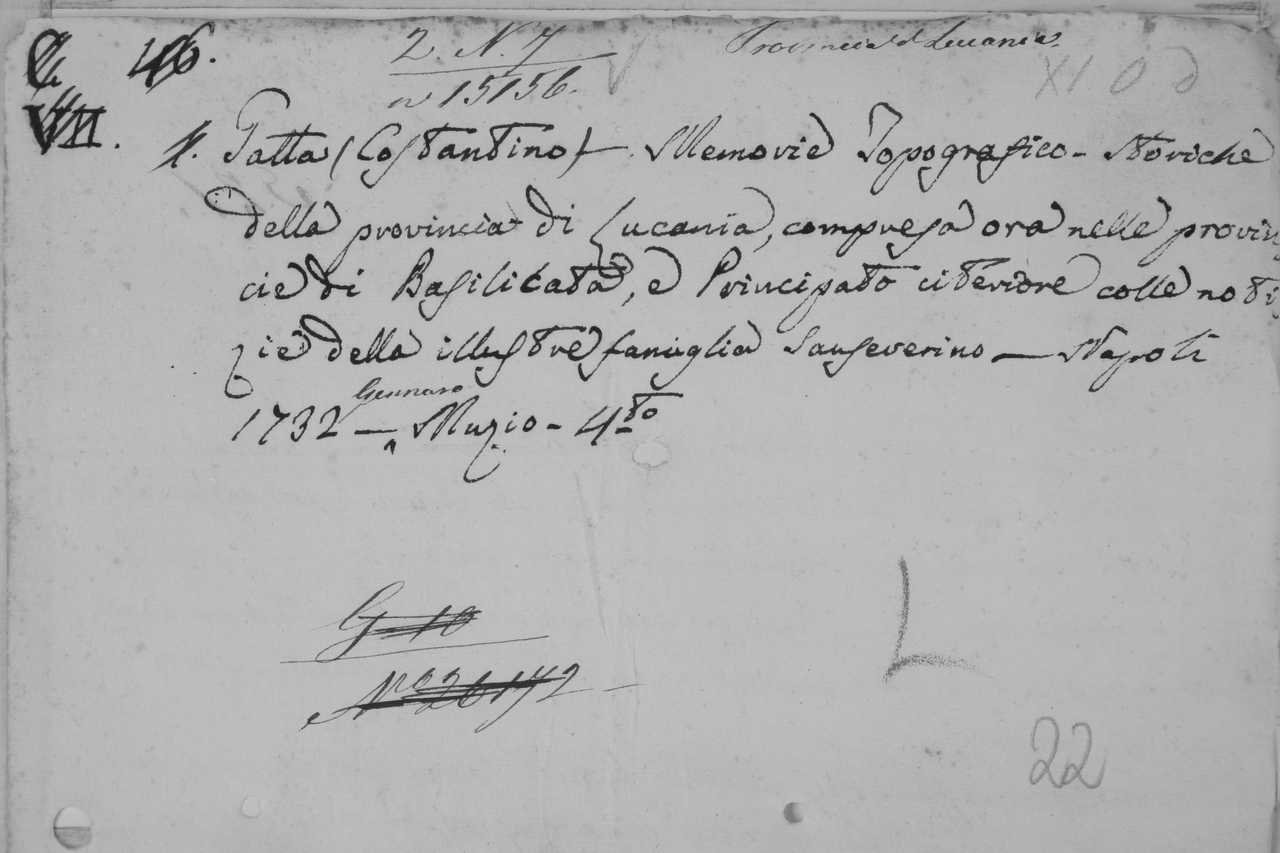 C. 46.
2. N. 7
n 15156.
Provincia d Lucania.
XI O d
VII.
1. Gatta (Costantino) — Memorie Topografico - Storiche
della provincia di Lucania, compresa ora nelle provin
cie di Basilicata, e Principato citeriore colle noti
zie della illustre famiglia Sanseverino — Napoli
Gennaro
1732 — Muzio - 4to
G 10
No 26172
L
22